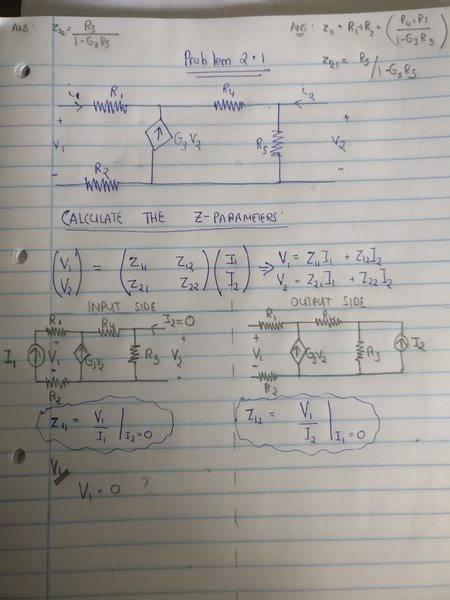 ANS: Z22 = R5 / 1-G3R5
ANS: Z11 = R1 + R2 + (R4+R5 / 1-G3R5)
Problem 2.1
Z21 = R5 / 1-G3R5
i1 R1 R4 i2
+ +
V1 G3V2 R5 V2
- R2 -
CALCULATE THE Z-PARAMETERS:
(V1 V2) = (Z11 Z12 Z21 Z22) (I1 I2) ⇒ V1 = Z11I1 + Z12I2
V2 = Z21I1 + Z22I2
INPUT SIDE
R1 R4 I2=0
I1 + V1 - G3V2 R3 + V2 -
R2
Z11 = V1 / I1 | I2=0
OUTPUT SIDE
R1 R4
+ V1 - G3V2 R3 I2
R2
Z12 = V1 / I2 | I1=0
V1
V1 = 0 ?